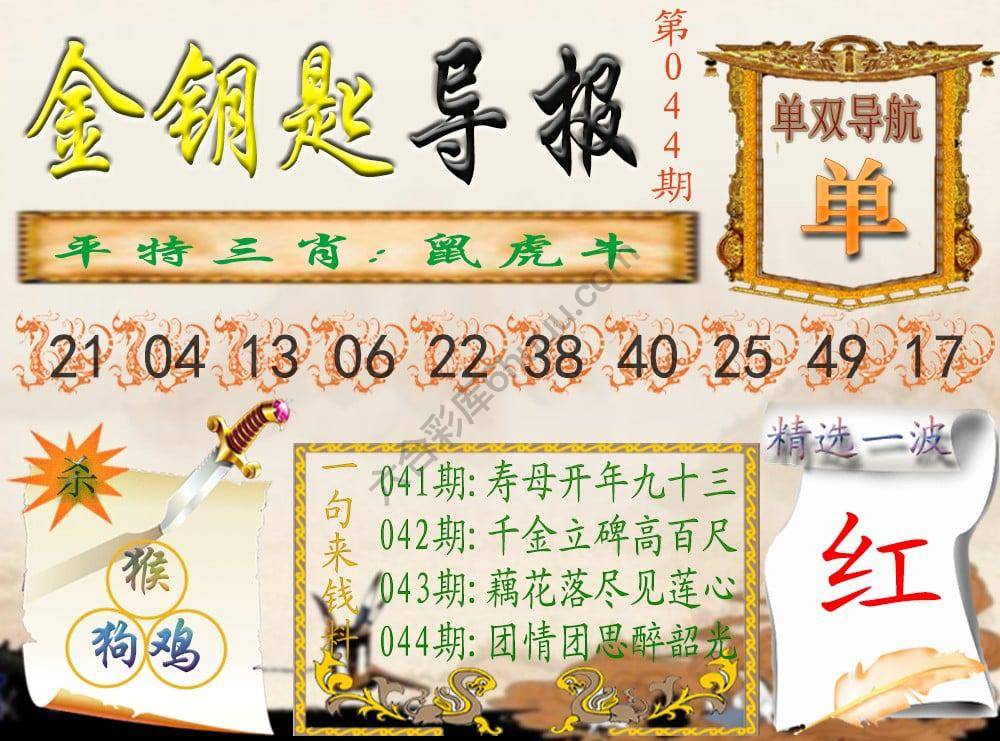 金钥匙导报
第044期
单双导航
单
平特三肖:鼠虎牛
21 04 13 06 22 38 40 25 49 17
杀
猴
狗 鸡
一句来钱料
041期:寿母开年九十三
042期:千金立碑高百尺
043期:藕花落尽见莲心
044期:团情团思醉韶光
精选一波
红